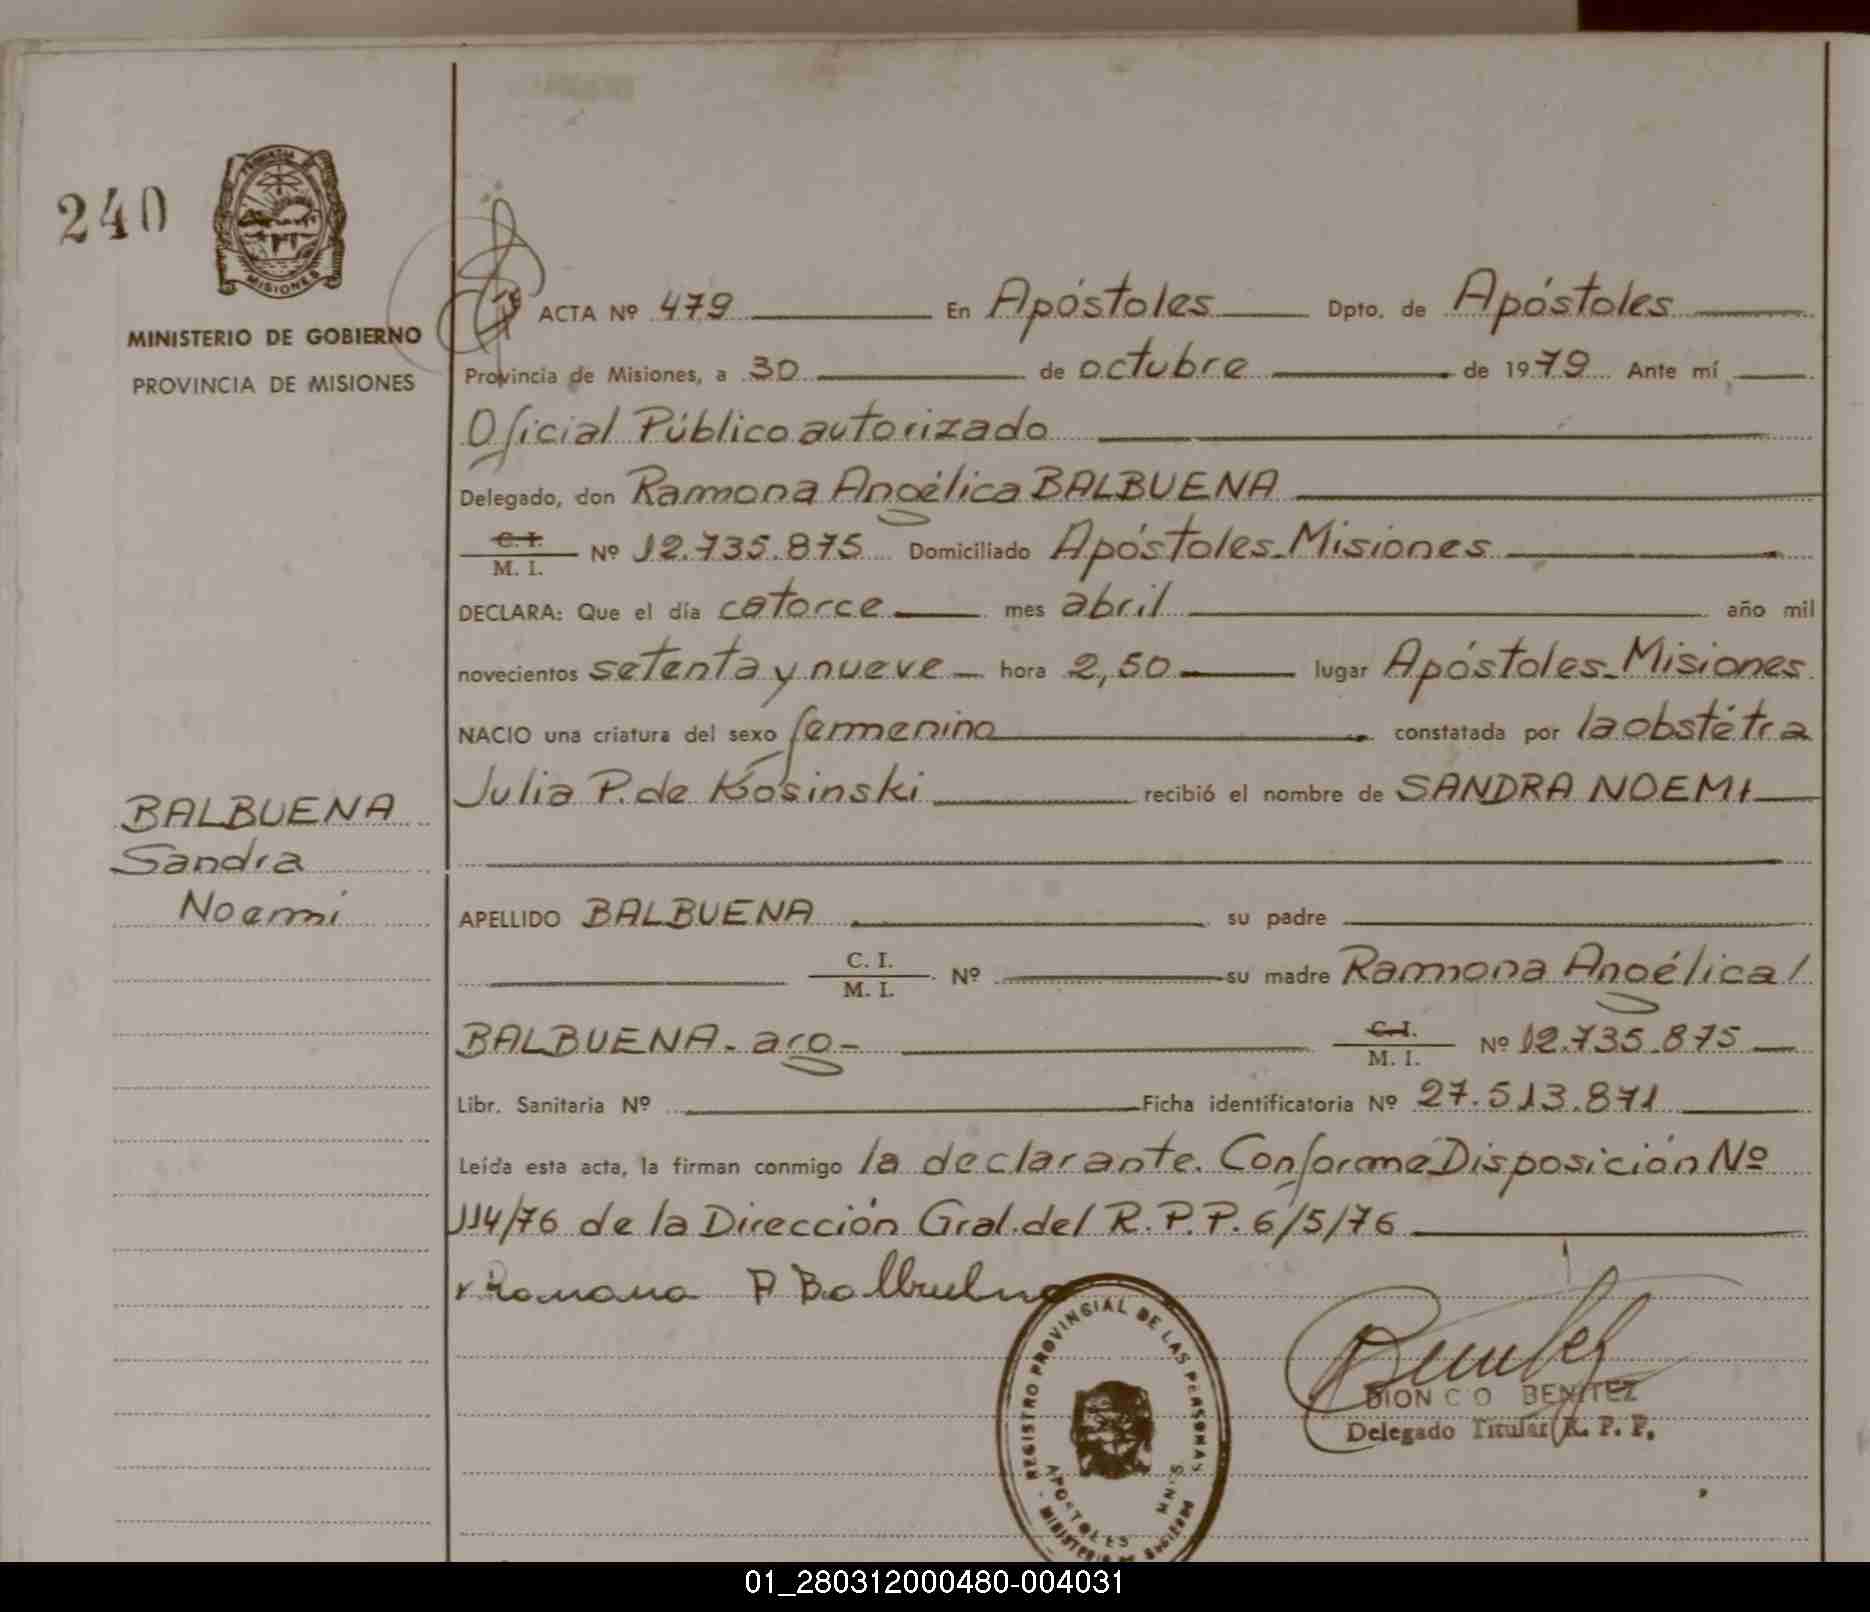 240
PROVINCIA DE
MISIONES
MINISTERIO DE GOBIERNO
PROVINCIA DE MISIONES
BALBUENA
Sandra
Noemi
ACTA Nº 479 En Apóstoles Dpto. de Apóstoles
Provincia de Misiones, a 30 de octubre de 1979 Ante mí
Oficial Público autorizado
Delegado, don Ramona Angélica BALBUENA
C. I.
M. I. Nº 12.735.875 Domiciliado Apóstoles-Misiones
DECLARA: Que el día catorce mes abril año mil
novecientos setenta y nueve hora 2,50 lugar Apóstoles-Misiones
NACIO una criatura del sexo femenino constatada por la obstétra
Julia P. de Kosinski recibió el nombre de SANDRA NOEMI
APELLIDO BALBUENA su padre
C. I.
M. I. Nº su madre Ramona Angélica
BALBUENA- arg- C. I.
M. I. Nº 12.735.875
Libr. Sanitaria Nº Ficha identificatoria Nº 27.513.871
Leída esta acta, la firman conmigo la declarante. Conforme Disposición Nº
114/76 de la Dirección Gral. del R.P.P. 6/5/76
Ramona A Balbuena
REGISTRO PROVINCIAL DE LAS PERSONAS
APOSTOLES MNES
Benitez
DION C O BENITEZ
Delegado Titular R. P. P.
01_280312000480-004031